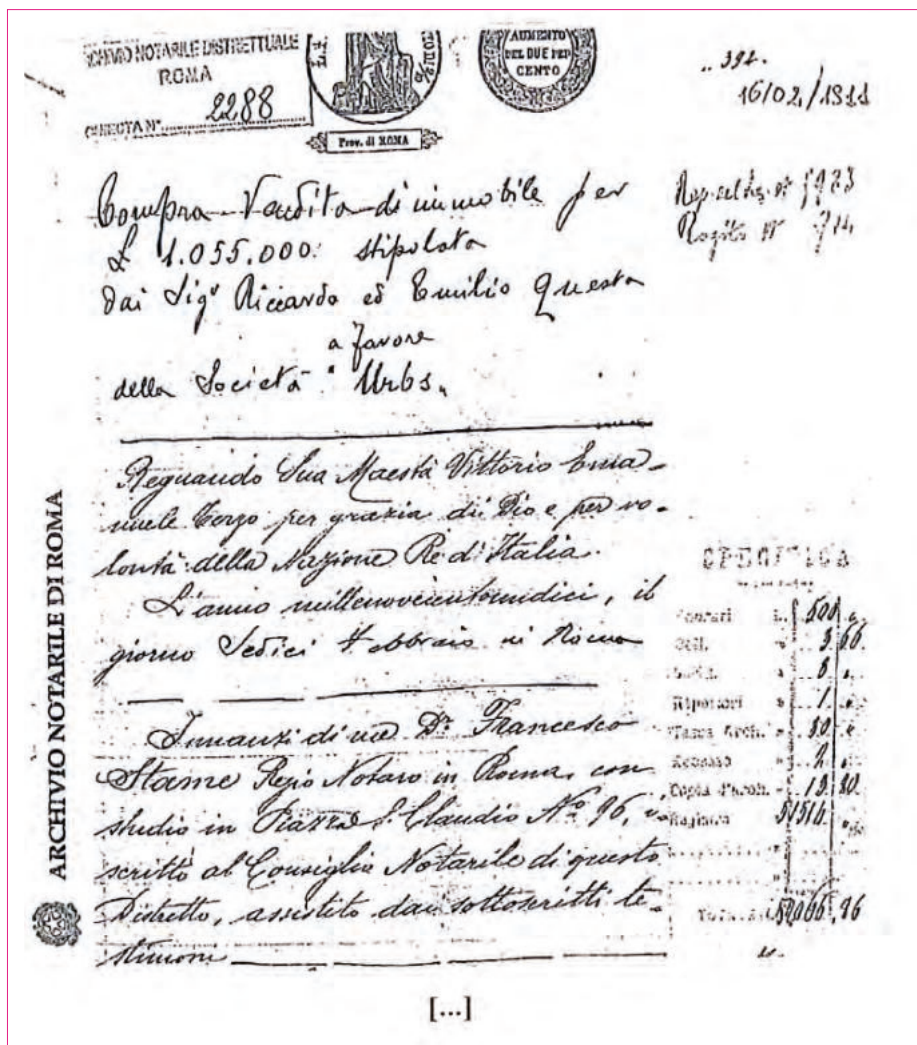 ARCHIVIO NOTARILE DISTRETTUALE
ROMA
2288
Prov. di ROMA
AUMENTO
DEL DUE PER
CENTO
392.
16/02/1911
Compra-Vendita di immobile per
L 1.055.000: stipolata
dai Sigri Riccardo ed Emilio Questa
a favore
della Società "Urbs"
Regnando Sua Maestà Vittorio Ema-
nuele Terzo per grazia di Dio e per vo-
lontà della Nazione Re d'Italia.
L'anno millenovecentoundici, il
giorno Sedici Febbraio in Roma
Innanzi di me Dr. Francesco
Stame Regio Notaro in Roma, con
studio in Piazza S. Claudio No. 96,
scritto al Consiglio Notarile di questo
Distretto, assistito dai sottoscritti te-
stimoni
SPECIFICA
Onorari L. 500
3,66
Repertori 1
Tassa Arch. 80
Accesso 2
Copia 19.80
Registro
[...]
ARCHIVIO NOTARILE DI ROMA